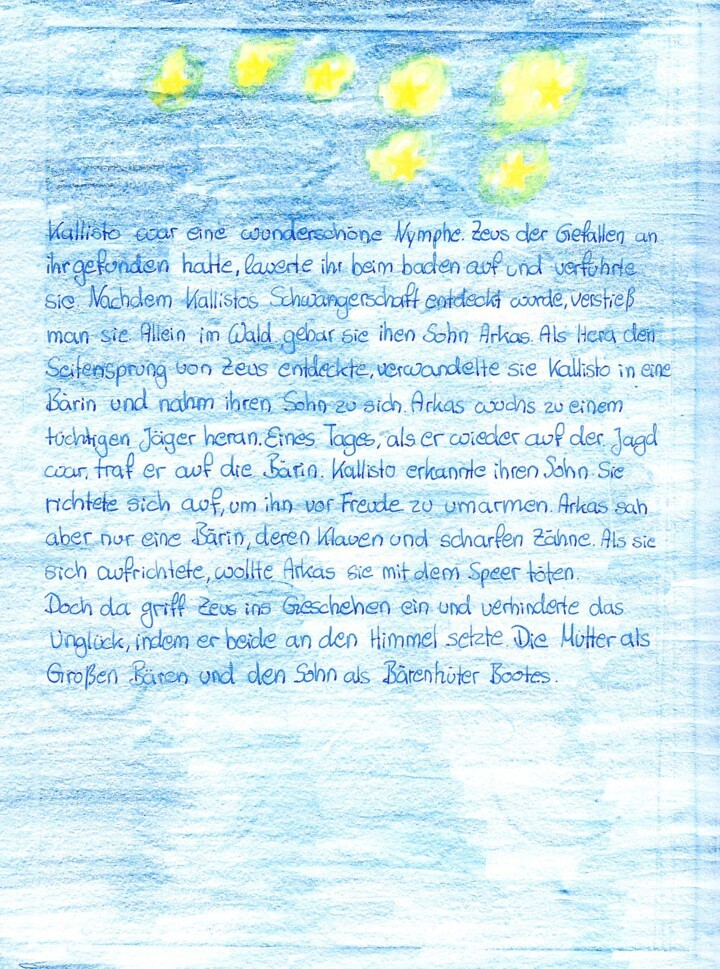 Kallisto war eine wunderschöne Nymphe. Zeus der Gefallen an
ihr gefunden hatte, lauerte ihr beim baden auf und verführte
sie. Nachdem Kallistos Schwangerschaft entdeckt wurde, verstieß
man sie. Allein im Wald gebar sie ihen Sohn Arkas. Als Hera den
Seitensprung von Zeus entdeckte, verwandelte sie Kallisto in eine
Bärin und nahm ihren Sohn zu sich. Arkas wuchs zu einem
tüchtigen Jäger heran. Eines Tages, als er wieder auf der Jagd
war, traf er auf die Bärin. Kallisto erkannte ihren Sohn. Sie
richtete sich auf, um ihn vor Freude zu umarmen. Arkas sah
aber nur eine Bärin, deren Klauen und scharfen Zähne. Als sie
sich aufrichtete, wollte Arkas sie mit dem Speer töten.
Doch da griff Zeus ins Geschehen ein und verhinderte das
Unglück, indem er beide an den Himmel setzte. Die Mutter als
Großen Bären und den Sohn als Bärenhüter Bootes.